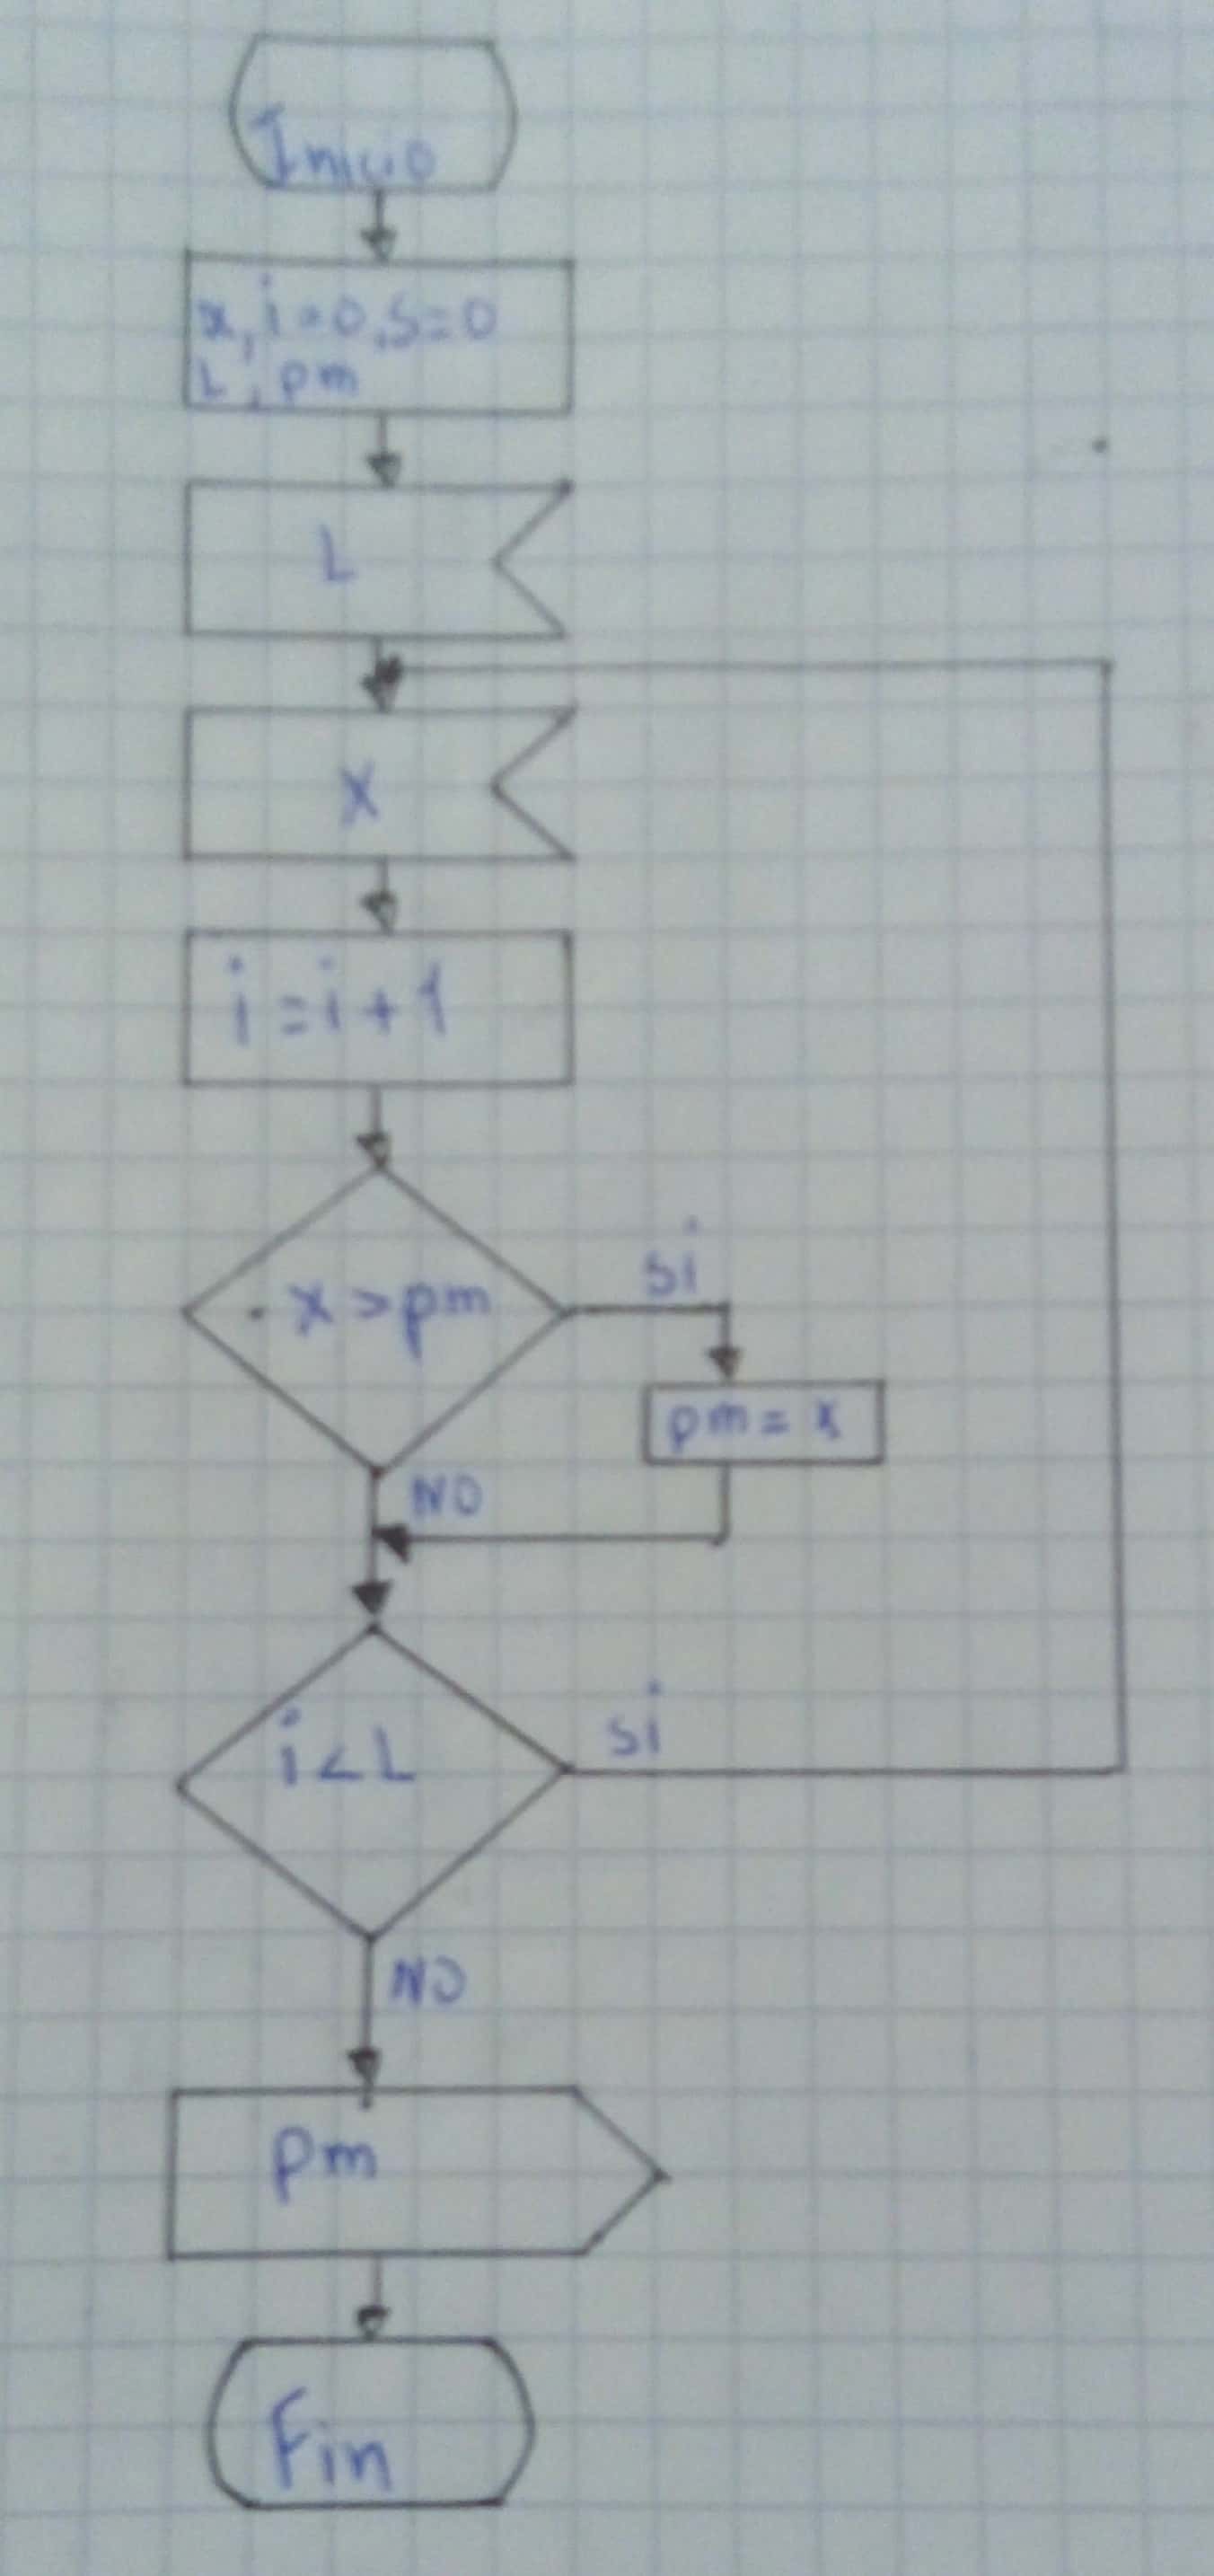 Inicio
x, i=0, s=0
L, pm
L
X
i = i + 1
X > pm
si
pm = x
NO
i < L
si
NO
pm
Fin